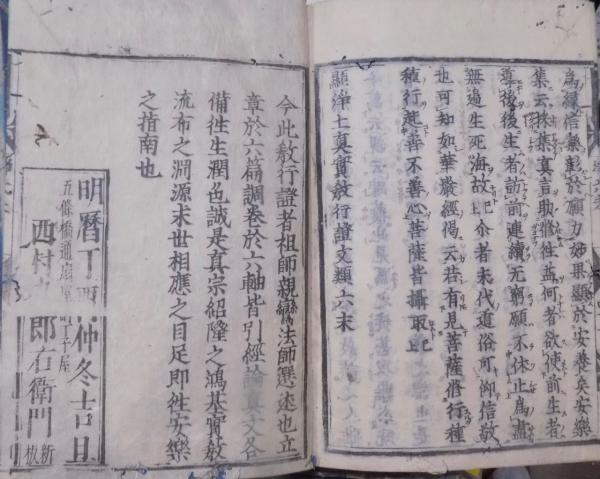 為縁信樂彰於願力妙果顯於安養矣安樂
集云採集真言助修徃益何者欲使前生者
導後後生者訪前連續无窮願不休止為盡
無邊生死海故已上介者末代道俗可仰信敬
也可知如華嚴經偈云若有見菩薩修行種
種行起善不善心菩薩皆攝取已上
顯淨土真實教行證文類六末
今此教行證者祖師親鸞法師選述也立
章於六篇調卷於六軸皆引經論真文各
備徃生潤色誠是真宗紹隆之鴻基實教
流布之淵源末世相應之目足即徃安樂
之指南也
明曆丁酉仲冬吉旦
五條橋通扇屋町丁子屋
西村 郎右衛門新板